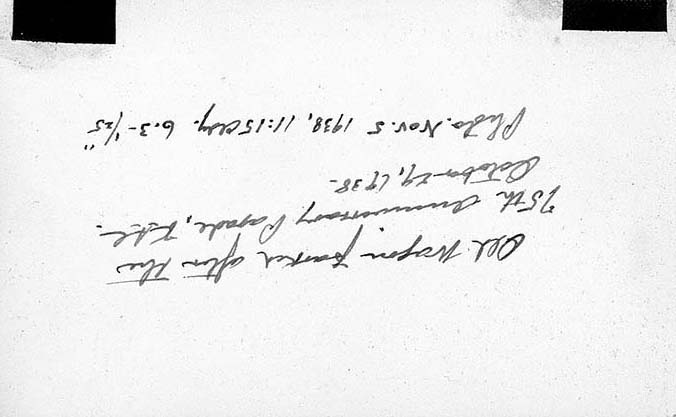 Old Wagon, parked after the
75th Anniversary Parade,
October 29, 1938.
Photo. Nov. 5 1938, 11:15 Cldy. 6.3 - 1/25"